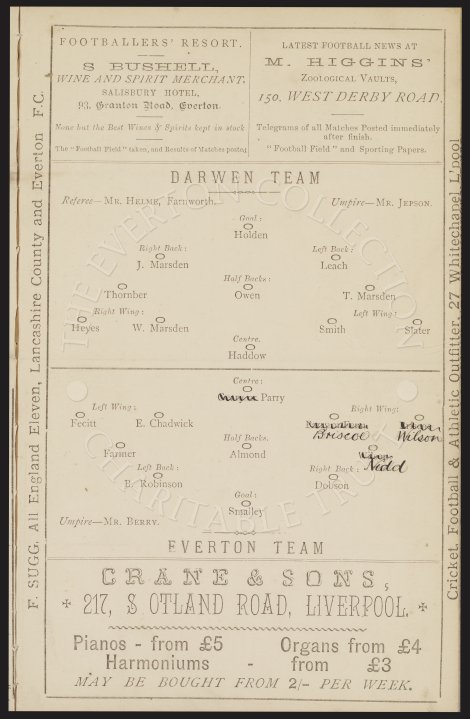 FOOTBALLERS' RESORT.
S BUSHELL,
WINE AND SPIRIT MERCHANT.
SALISBURY HOTEL,
93, Granton Road, Everton.
None but the Best Wines & Spirits kept in stock
The "Football Field" taken, and Results of Matches posted
LATEST FOOTBALL NEWS AT
M. HIGGINS'
ZOOLOGICAL VAULTS,
150, WEST DERBY ROAD.
Telegrams of all Matches Posted immediately
after finish.
"Football Field" and Sporting Papers.
DARWEN TEAM
Referee—MR. HELME, Farnworth. Umpire—MR. JEPSON.
Goal:
Holden
Right Back: Left Back:
J. Marsden Leach
Half Backs:
Thornber Owen T. Marsden
Right Wing: Left Wing:
Heyes W. Marsden Smith Slater
Centre.
Haddow
Centre:
Parry
Left Wing: Right Wing:
Fecitt E. Chadwick Briscoe Wilson
Half Backs.
Farmer Almond Nidd
Left Back: Right Back:
B. Robinson Dobson
Goal:
Smalley
Umpire—MR. BERRY.
EVERTON TEAM
CRANE & SONS,
217, S OTLAND ROAD, LIVERPOOL.
Pianos - from £5 Organs from £4
Harmoniums - from £3
MAY BE BOUGHT FROM 2/- PER WEEK.
F. SUGG. All England Eleven, Lancashire County and Everton F.C.
Cricket, Football & Athletic Outfitter, 27 Whitechapel L'pool
THE EVERTON COLLECTION
CHARITABLE TRUST